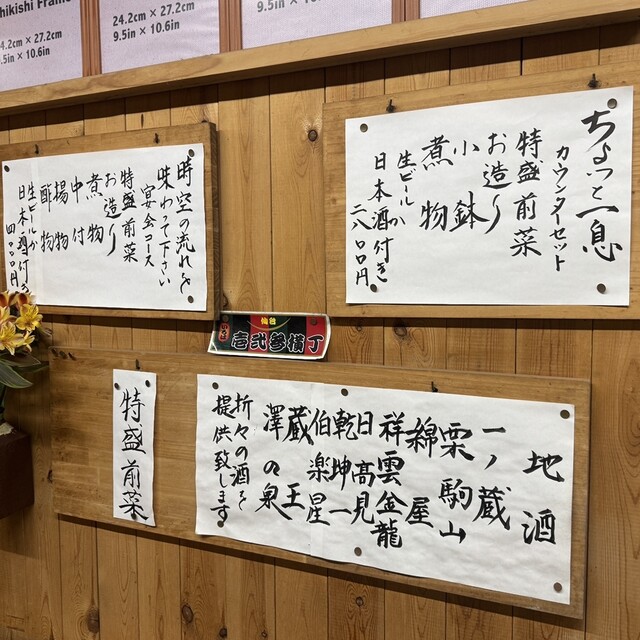 hikishi Frame
24.2cm × 27.2cm
9.5in × 10.6in
24.2cm × 27.2cm
9.5in × 10.6in
4.2cm × 27.2cm
.5in × 10.6in
ちょっと一息
カウンターセット
特盛前菜
お造り
小鉢
煮物
生ビールか
日本酒付き
二八〇〇円
時空の流れを
味わって下さい
宴会コース
特盛前菜
お造り
煮物
中付
揚物
酢物
生ビールか
日本酒付き
四〇〇〇円
仙台
壱弐参横丁
地酒
一ノ蔵
栗駒山
綿屋
祥雲金龍
日高見
乾坤一
伯楽星
蔵王
澤の泉
折々の酒を
提供致します
特盛前菜